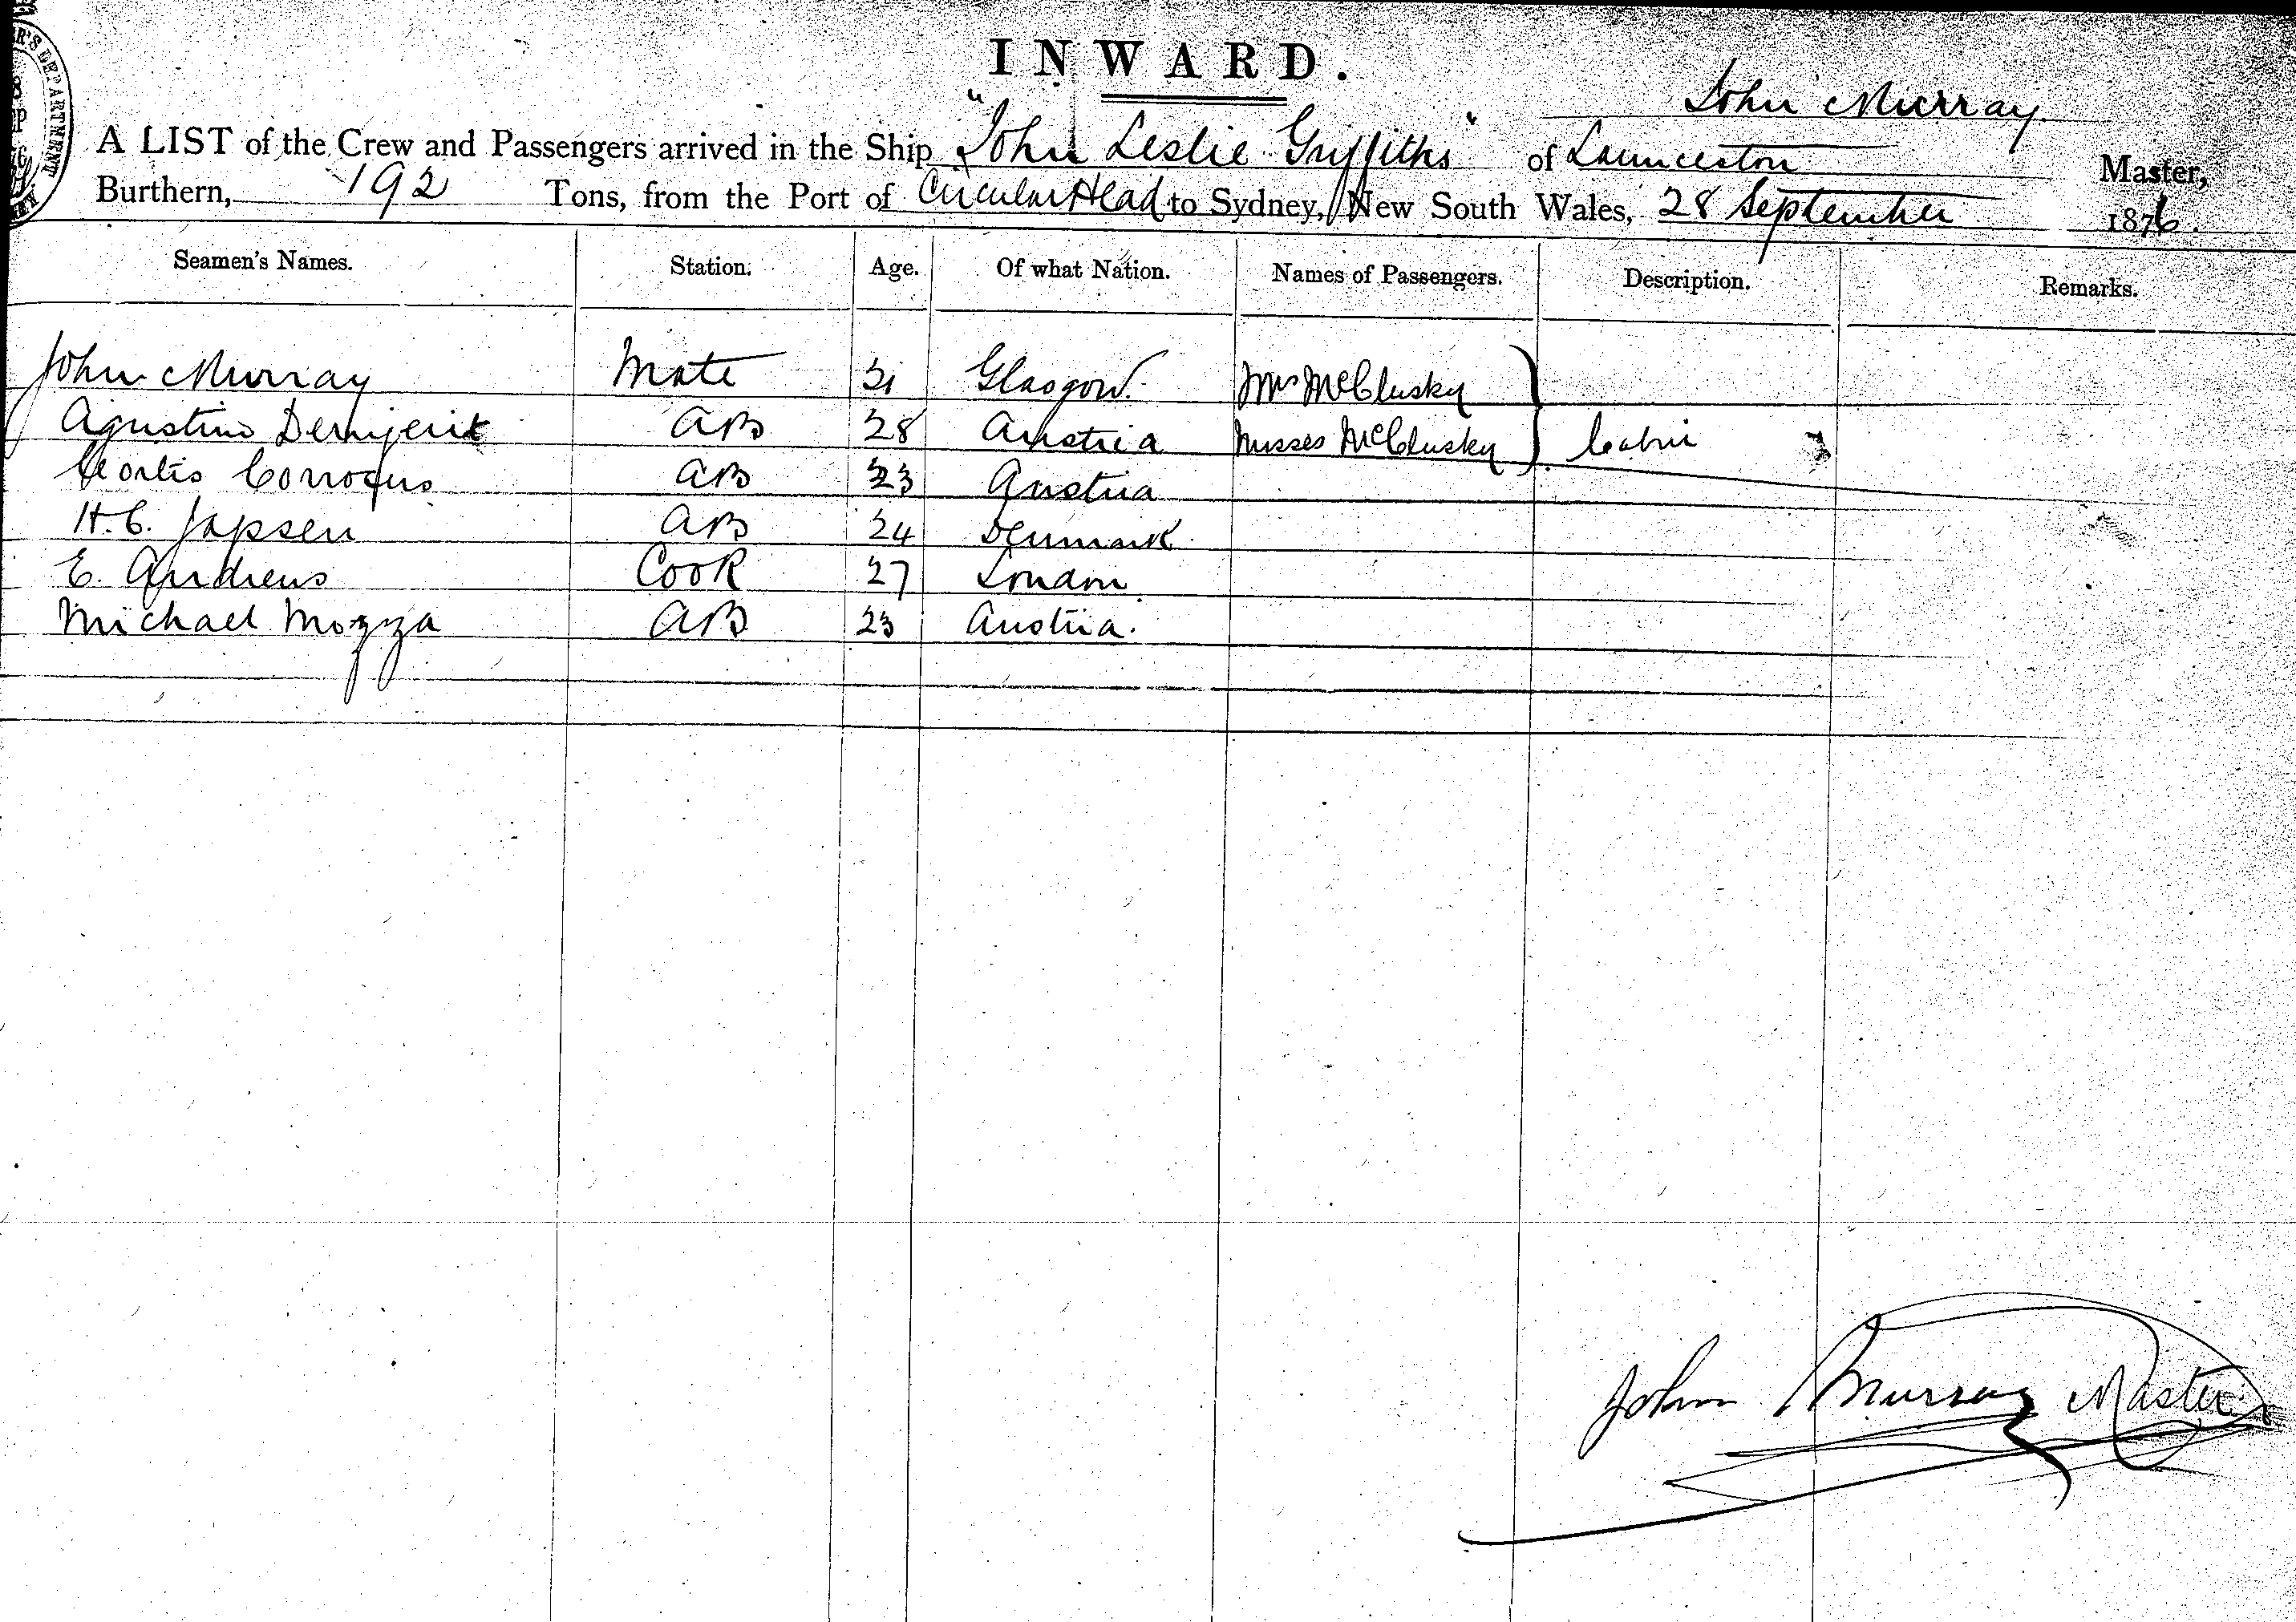 INWARD.
John Murray
A LIST of the Crew and Passengers arrived in the Ship "John Leslie Griffiths" of Launceston Master,
Burthern, 192 Tons, from the Port of Circular Head to Sydney, New South Wales, 28 September 1876.
Seamen's Names. Station. Age. Of what Nation. Names of Passengers. Description. Remarks.
John Murray Mate 31 Glasgow. Mrs McClusky
Agustino AB 28 Austria Misses McClusky Cabin
AB 23 Austria
H.C. Japsen AB 24 Denmark
E. Andrews Cook 27 London
Michael Mozza AB 23 Austria.
John Murray Master
DEPARTMENT